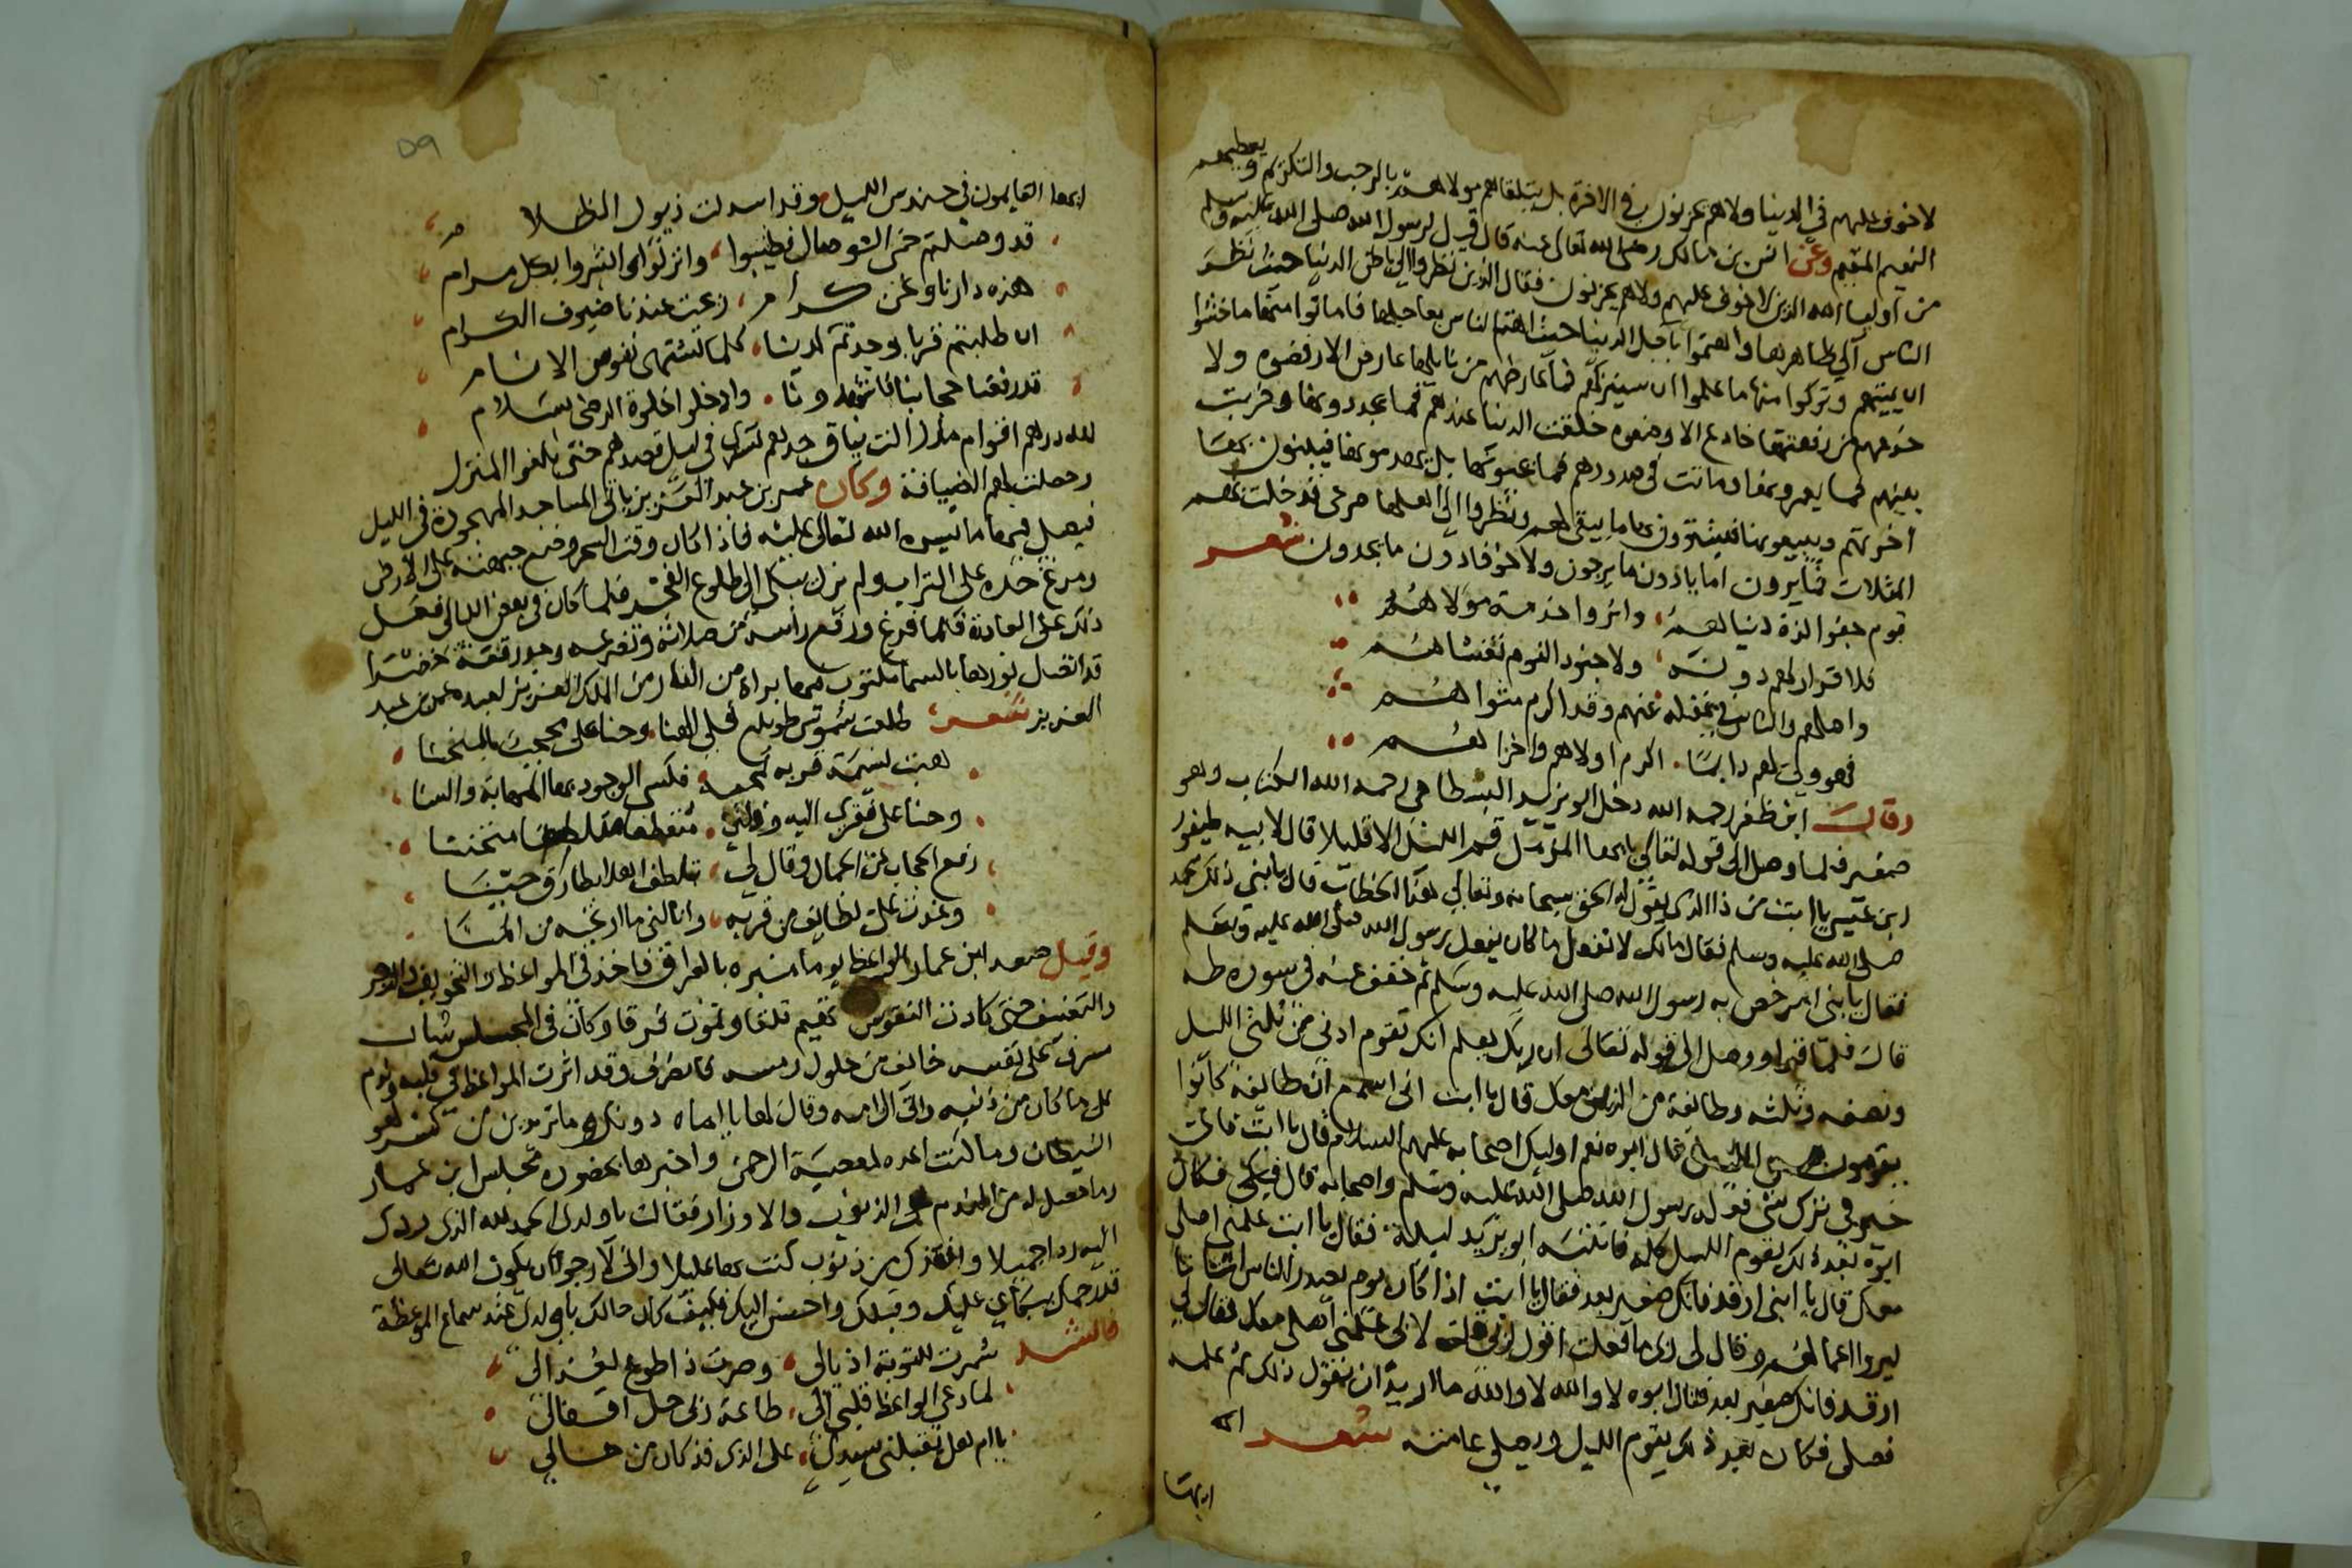 لا خوف عليهم في الدنيا ولا هم يحزنون في الاخرة بل يتلقاهم مولاهم بالرحب والتكريم ويعطيهم
النعيم المقيم وعن انس بن مالك رضي الله تعالى عنه قال قيل لرسول الله صلى الله عليه وسلم
من اوليا الله الذين لا خوف عليهم ولا هم يحزنون فقال الذين نظروا الى باطن الدنيا حيث نظر
الناس الى ظاهرها واهتموا باجل الدنيا حيث اهتم الناس بعاجلها فاماتوا منها ما خشوا
ان يميتهم وتركوا منها ما علموا ان سيتركهم فما عارضهم من نايلها عارض الا رفضوه ولا
خدعهم من رفعتها خادع الا وضعوه خلقت الدنيا عندهم فما يجددونها وخربت
بينهم فما يعمرونها وماتت في صدورهم فما يحيونها بل يهدمونها فيبنون بها
اخرتهم ويبيعونها فيشترون بها ما يبقى لهم ونظروا الى اهلها صرعى قد خلت بهم
المثلات فما يرون امانا دون ما يرجون ولا خوفا دون ما يجدون شعر
قوم جفوا لذة دنيا لهم واثروا خدمة مولاهم
فلا قرار لهم دونه ولا جنود النوم تغشاهم
واصلهم والناس في غفلة عنهم وقد اكرم مثواهم
فهو ولي لهم دايما اكرم اولاهم واخراهم
وقال ابن ظفر رحمه الله دخل ابو يزيد البسطامي رحمه الله الكتاب وهو
صغير فلما وصل الى قوله تعالى يا ايها المزمل قم الليل الا قليلا قال لابيه طيفور
ابن عيسى يا ابت من ذا الذي يقول له الحق سبحانه وتعالى هذا الخطاب قال يا بني ذلك محمد
صلى الله عليه وسلم فقال مالك لا تفعل ما كان يفعل رسول الله صلى الله عليه وسلم
فقال يا بني امر خص به رسول الله صلى الله عليه وسلم ثم خفف عنه في سورة طه
قال فلما قرا ووصل الى قوله تعالى ان ربك يعلم انك تقوم ادنى من ثلثي الليل
ونصفه وثلثه وطائفة من الذين معك قال يا ابت اني اسمع ان طائفة كانوا
يقومون الليل قال ابوه نعم اوليك اصحابه عليهم السلام قال يا ابت فاي
خير في ترك شي فعله رسول الله صلى الله عليه وسلم واصحابه قال فبكى فكان
ابوه بعد ذلك يقوم الليل كله فانتبه ابو يزيد ليلة فقال يا ابت علمني اصلي
معك قال يا ابني ارقد فانك صغير بعد فقال يا ابت اذا كان يوم يصدر الناس اشتاتا
ليروا اعمالهم وقال لي ربي ما فعلت اقول اني قلت لابي علمني اصلي معك فقال لي
ارقد فانك صغير بعد فقال ابوه لا والله لا والله ما اريد ان تقول ذلك ثم علمه
فصلى فكان بعد ذلك يقوم الليل ويصلي عامته شعر
ايها
٥٩
ايها القايمون في حندس الليل وقد اسدلت ذيول الظلام
قد وصلتم حمى الوصال فطيبوا وانزلوا ابشروا بكل مرام
هذه دارنا ونحن كرام رعيت عندنا ضيوف الكرام
ان طلبتم قربا وجدتم لدينا كلما تشتهي نفوس الانام
قد رفعنا حجابنا وادخلوا خلوة الرضى بسلام
لله درهم اقوام ما زالت نياق جدهم تسري في ليل قصدهم حتى بلغوا المنزل
وحصلت لهم الضيافة وكان عمر بن عبد العزيز ياتي المساجد المهجورة في الليل
فيصلي فيها ما تيسره الله تعالى عليه فاذا كان وقت السحر وضع جبهته على الارض
ومرغ خده على التراب ولم يزل يبكي الى طلوع الفجر فلما كان في بعض الليالي فعل
ذلك على العادة فلما فرغ ورفع راسه من صلاته وتضرعه وجد رقعة خضرا
قد اتصل نورها بالسما مكتوب فيها براة من النار من الملك العزيز لعبده عمر بن عبد
العزيز شعر طلعت شموس طويلع قبلي الهنا وحنا على محبيه بالمنحنا
هبت نسيمة قربه فكسى الوجود بها المهابة والسنا
وحنا على فقري اليه متعطفا متحننا
رفع الحجاب عن الجمال وقال لي
وغدت علي لطايف من قربه وانالني ما ارتجيه من المنا
وقيل صعد ابن عمار الواعظ يوما منبره بالعراق فاخذ في المواعظ والتخويف والزجر
والتعنيف حتى كادت النفوس تهيم قلقا وتموت فرقا وكان في المجلس شاب
مسرف على نفسه خايف من حلول رمسه فانصرف وقد اثرت المواعظ في قلبه وندم
على ما كان من ذنبه واتى الى امه وقال لها يا اماه دونك ما تريدين من كسر لهو
الشيطان وما كنت اعده لمعصية الرحمن واخبرها بحضوره مجلس ابن عمار
وما حصل له من الندم على الذنوب والاوزار فقالت يا ولدي الحمد لله الذي ردك
اليه ردا جميلا وانقذك من ذنوب كنت بها عليلا واني لارجو ان يكون الله تعالى
قد رحمك ببكاي عليك وقبلك واحسن اليك فكيف كان حالك يا ولدي عند سماع الموعظة
فانشد شمرت للتوبة اذيالي وصرت ذا طوع لعذالي
لما دعى الواعظ قلبي الى طاعة ربي حل اقفالي
يا ام هل يقبلني سيدي على الذي قد كان من حالي